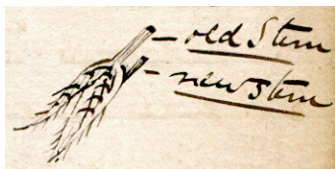 old Stem
new stem